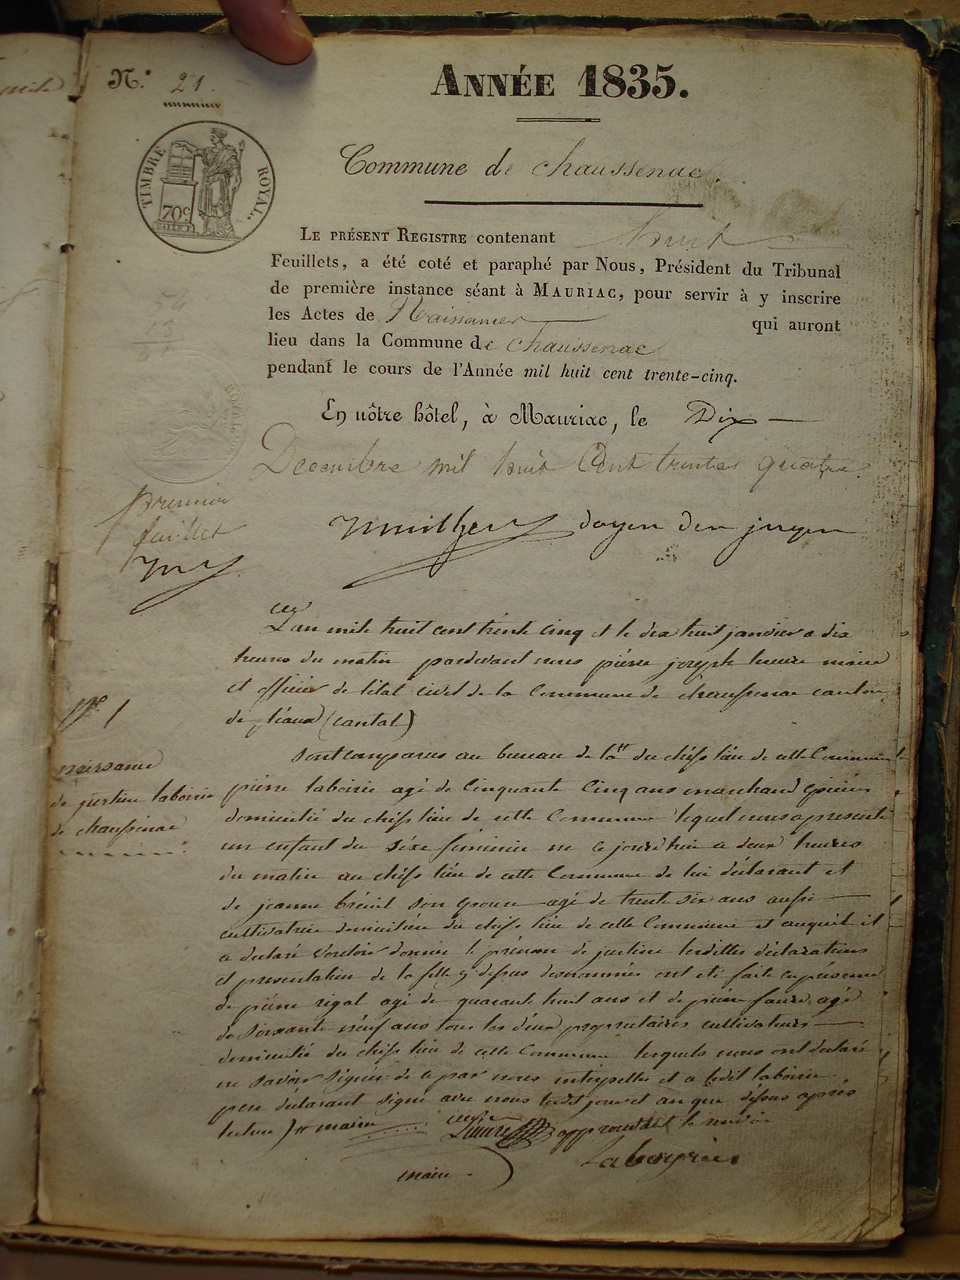 N.º 21.
ANNÉE 1835.
TIMBRE ROYAL
70c
Commune de Chaussenac.
LE PRÉSENT REGISTRE contenant huit
Feuillets, a été coté et paraphé par Nous, Président du Tribunal
de première instance séant à MAURIAC, pour servir à y inscrire
les Actes de Naissances qui auront
lieu dans la Commune de Chaussenac
pendant le cours de l'Année mil huit cent trente-cinq.
En nôtre hôtel, à Mauriac, le Dix
Decembre mil huit Cent trente quatre
premier
feuillet
doyen des juges
L'an mile huit cent trente cinq et le dix huit janvier a dix
heures du matin pardevant nous pierre joseph maire
et officier de l'état civil de la Commune de chaussenac canton
de pléaux (cantal)
nº 1
naissance
de justine laboirie
de chaussenac
sont comparus au bureau de la m du cheflieu de cette Commune
pierre laboirie agé de cinquante cinq ans marchand épicier
domicilié du cheflieu de cette Commune lequel nous a presenté
un enfant du sèxe féminin né ce jourd'huis a deux heures
du matin au cheflieu de cette Commune de lui déclarant et
de jeanne breuil son epouse agé de trente six ans aussi
cultivatrice domiciliée du cheflieu de cette Commune et auquel il
a declaré vouloir donner le prénom de justine lesdittes déclarations
et presentation de la fille y dessus denommée ont eté faite en présence
de pierre rigal agé de quarante huit ans et de pierre faure agé
de soixante neuf ans tous les deux propriétaires cultivateurs
domicilié du cheflieu de cette Commune lesquels nous ont declaré
ne savoir signer de ce par nous interpellés et a ledit laboirie
pere déclarant signé avec nous ledit jour et an que dessus après
lecture mairie approuvant le
Laboyrie
maire